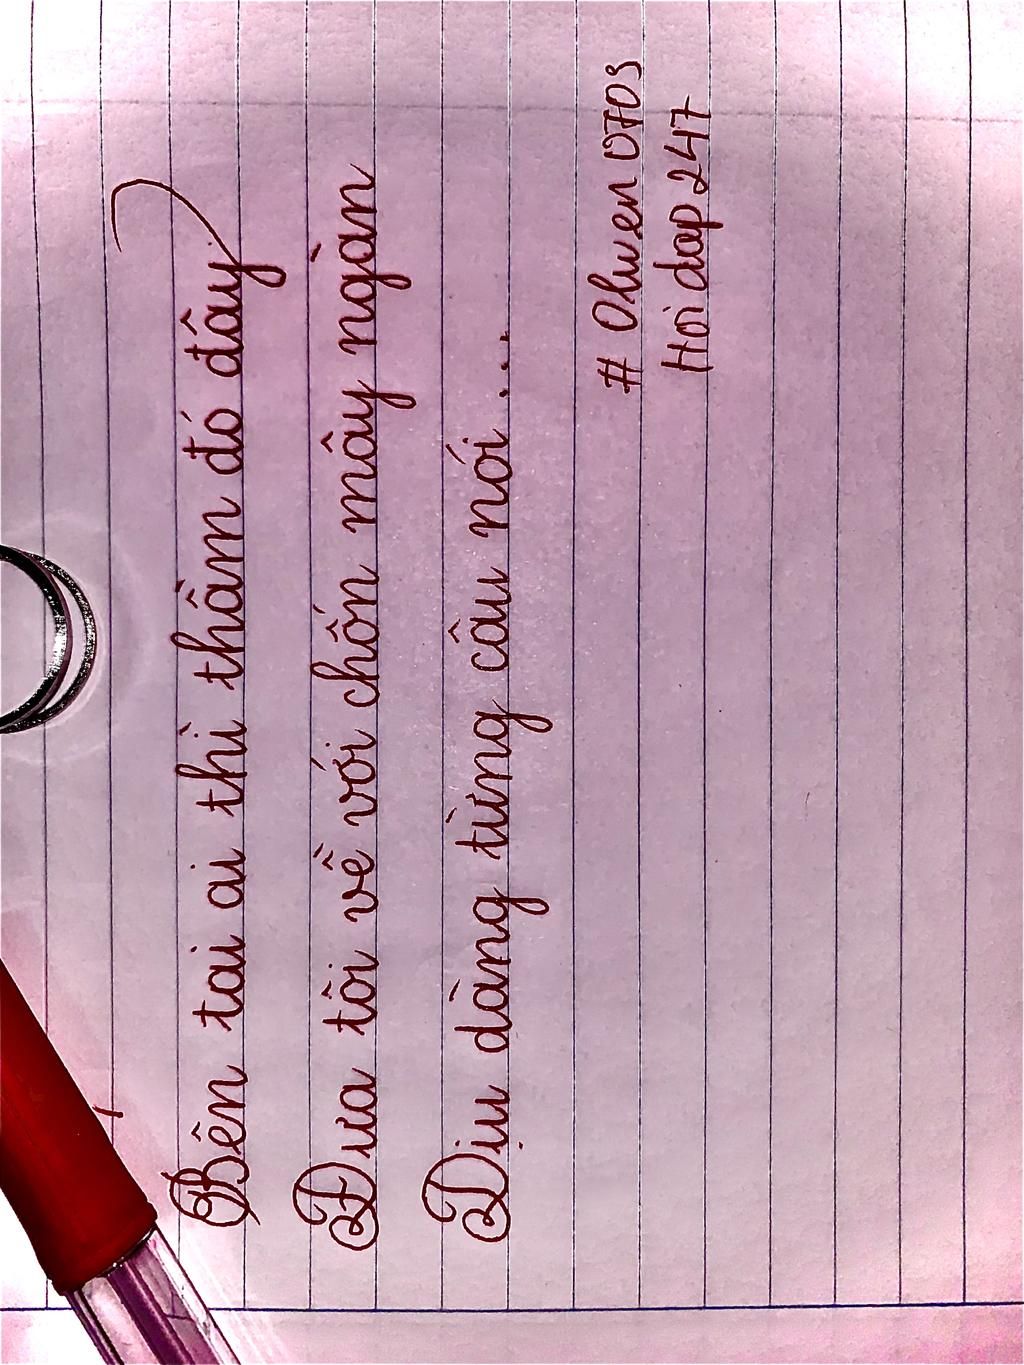 Bên tai ai thì thầm đó đây
Đưa tôi về với chốn mây ngàn
Dịu dàng từng câu nói...
# Olwen0709
Hoidap247